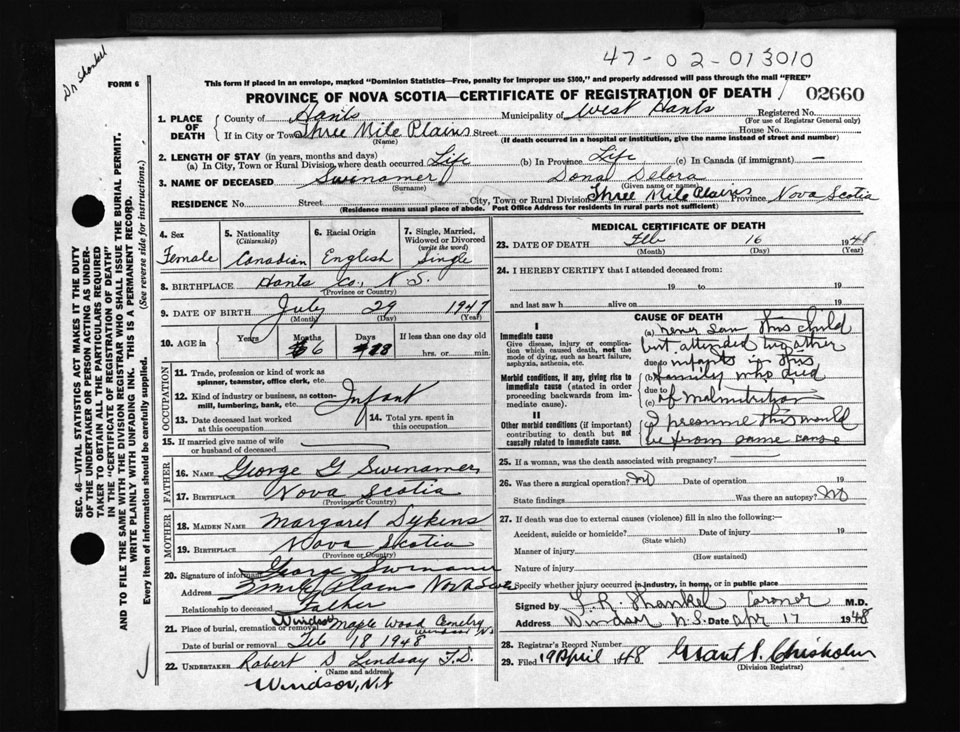 47-02-013010
Dr Shankel
FORM 6
This form if placed in an envelope, marked "Dominion Statistics—Free, penalty for improper use $300," and properly addressed will pass through the mail "FREE"
PROVINCE OF NOVA SCOTIA—CERTIFICATE OF REGISTRATION OF DEATH
02660
SEC. 46—VITAL STATISTICS ACT MAKES IT THE DUTY
OF THE UNDERTAKER OR PERSON ACTING AS UNDER-
TAKER TO OBTAIN ALL THE PARTICULARS REQUIRED
IN THE "CERTIFICATE OF REGISTRATION OF DEATH"
AND TO FILE THE SAME WITH THE DIVISION REGISTRAR WHO SHALL ISSUE THE BURIAL PERMIT.
WRITE PLAINLY WITH UNFADING INK. THIS IS A PERMANENT RECORD.
Every item of information should be carefully supplied. (See reverse side for instructions.)
1. PLACE OF DEATH
County of Hants Municipality of West Hants Registered No.
(For use of Registrar General only)
If in City or Town Three Mile Plains Street House No.
(Name) (If death occurred in a hospital or institution, give the name instead of street and number)
2. LENGTH OF STAY (in years, months and days)
(a) In City, Town or Rural Division where death occurred Life (b) In Province Life (c) In Canada (if immigrant) —
3. NAME OF DECEASED Swinamer Dona Delora
(Surname) (Given name or names)
RESIDENCE No. Street City, Town or Rural Division Three Mile Plains Province Nova Scotia
(Residence means usual place of abode. Post Office Address for residents in rural parts not sufficient)
4. Sex Female
5. Nationality (Citizenship) Canadian
6. Racial Origin English
7. Single, Married, Widowed or Divorced (write the word) Single
8. BIRTHPLACE Hants Co., N.S.
(Province or Country)
9. DATE OF BIRTH July 29 1947
(Month) (Day) (Year)
10. AGE in Years Months 6 Days 18 If less than one day old
hrs. or min.
OCCUPATION
11. Trade, profession or kind of work as spinner, teamster, office clerk, etc.
12. Kind of industry or business, as cotton-mill, lumbering, bank, etc. Infant
13. Date deceased last worked at this occupation
14. Total yrs. spent in this occupation
15. If married give name of wife or husband of deceased
FATHER
16. NAME George G Swinamer
17. BIRTHPLACE Nova Scotia
(Province or Country)
MOTHER
18. MAIDEN NAME Margaret Sykens
19. BIRTHPLACE Nova Scotia
(Province or Country)
20. Signature of informant George Swinamer
Address 3 mile Plains Nova Scotia
Relationship to deceased Father
21. Place of burial, cremation or removal Windsor Maple Wood Cemetry Windsor NS
Date of burial or removal Feb 18 1948
22. UNDERTAKER Robert D Lindsay F.D.
(Name and address)
Windsor, N.S
MEDICAL CERTIFICATE OF DEATH
23. DATE OF DEATH Feb 16 1948
(Month) (Day) (Year)
24. I HEREBY CERTIFY that I attended deceased from:
19 to 19
and last saw h alive on 19
CAUSE OF DEATH
I
Immediate cause
Give disease, injury or complication which caused death, not the mode of dying, such as heart failure, asphyxia, asthenia, etc.
Morbid conditions, if any, giving rise to immediate cause (stated in order proceeding backwards from immediate cause).
II
Other morbid conditions (if important) contributing to death but not causally related to immediate cause.
(a) never saw this child
but attended two other
due to infants in this
(b) family who died
due to
(c) of Malnutrition
I presume this would
be from same cause
25. If a woman, was the death associated with pregnancy?
26. Was there a surgical operation? No Date of operation 19
State findings Was there an autopsy? No
27. If death was due to external causes (violence) fill in also the following:—
Accident, suicide or homicide? Date of injury 19
(State which)
Manner of injury
(How sustained)
Nature of injury
Specify whether injury occurred in industry, in home, or in public place
Signed by F. R Shankel Coroner M.D.
Address Windsor N.S. Date Apr 17 1948
28. Registrar's Record Number
29. Filed 19 April 1948 Grant P. Chisholm
(Division Registrar)